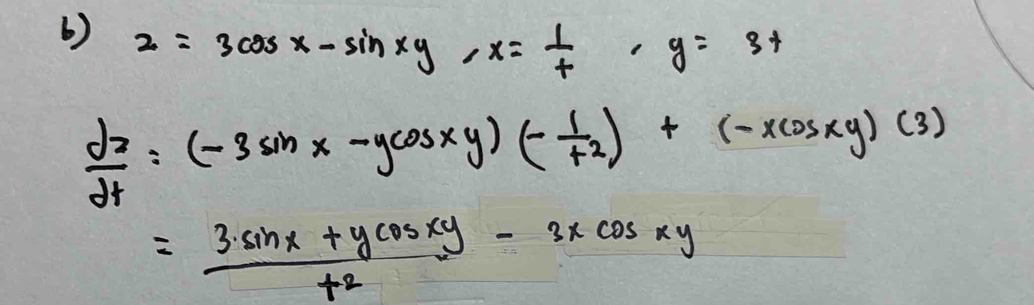 b) z = 3cos x - sin xy , x = 1/t , y = 3t
dz/dt = (-3 sin x - ycosxy) (-1/t²) + (-xcosxy) (3)
= (3·sinx + ycosxy)/t² - 3x cos xy